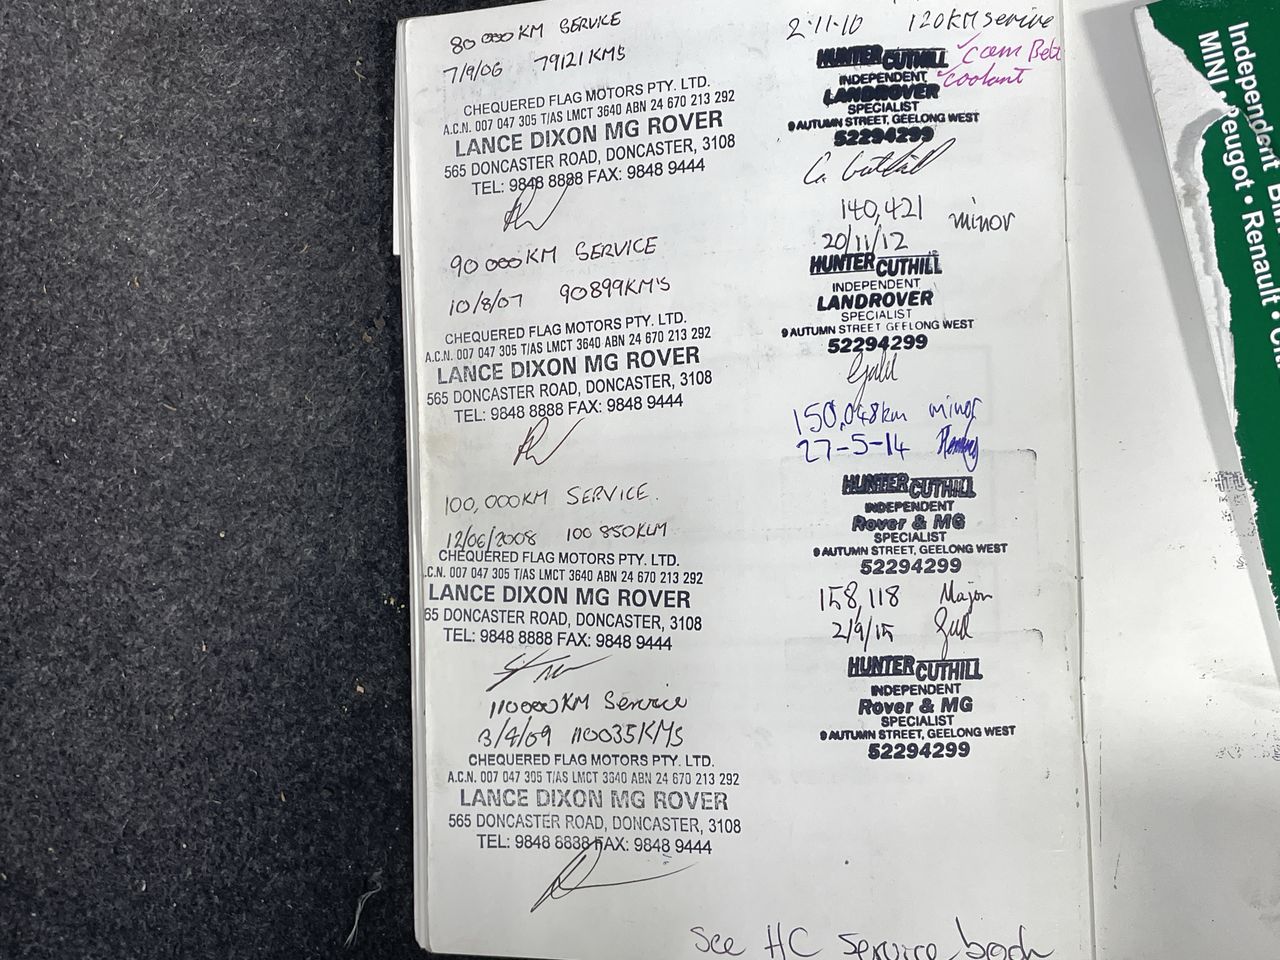 80000KM SERVICE
7/9/06 79121KMS
CHEQUERED FLAG MOTORS PTY. LTD.
A.C.N. 007 047 305 T/AS LMCT 3640 ABN 24 670 213 292
LANCE DIXON MG ROVER
565 DONCASTER ROAD, DONCASTER, 3108
TEL: 9848 8888 FAX: 9848 9444
90000KM SERVICE
10/8/07 90899KM'S
CHEQUERED FLAG MOTORS PTY. LTD.
A.C.N. 007 047 305 T/AS LMCT 3640 ABN 24 670 213 292
LANCE DIXON MG ROVER
565 DONCASTER ROAD, DONCASTER, 3108
TEL: 9848 8888 FAX: 9848 9444
100,000KM SERVICE.
12/06/2008 100 850KLM
CHEQUERED FLAG MOTORS PTY. LTD.
.C.N. 007 047 305 T/AS LMCT 3640 ABN 24 670 213 292
LANCE DIXON MG ROVER
65 DONCASTER ROAD, DONCASTER, 3108
TEL: 9848 8888 FAX: 9848 9444
110000KM Service
3/4/09 110035KMS
CHEQUERED FLAG MOTORS PTY. LTD.
A.C.N. 007 047 305 T/AS LMCT 3640 ABN 24 670 213 292
LANCE DIXON MG ROVER
565 DONCASTER ROAD, DONCASTER, 3108
TEL: 9848 8888 FAX: 9848 9444
2·11·10 120KM service
HUNTER CUTHILL ✓cam Belt
INDEPENDENT ✓coolant
LANDROVER
SPECIALIST
9 AUTUMN STREET, GEELONG WEST
52294299
140,421 minor
20/11/12
HUNTER CUTHILL
INDEPENDENT
LANDROVER
SPECIALIST
9 AUTUMN STREET GEELONG WEST
52294299
150,048km minor
27-5-14
HUNTER CUTHILL
INDEPENDENT
Rover & MG
SPECIALIST
9 AUTUMN STREET, GEELONG WEST
52294299
158,118 Major
2/9/15
HUNTER CUTHILL
INDEPENDENT
Rover & MG
SPECIALIST
9 AUTUMN STREET, GEELONG WEST
52294299
See HC Service book
Independent
MINI • Peugot • Renault •